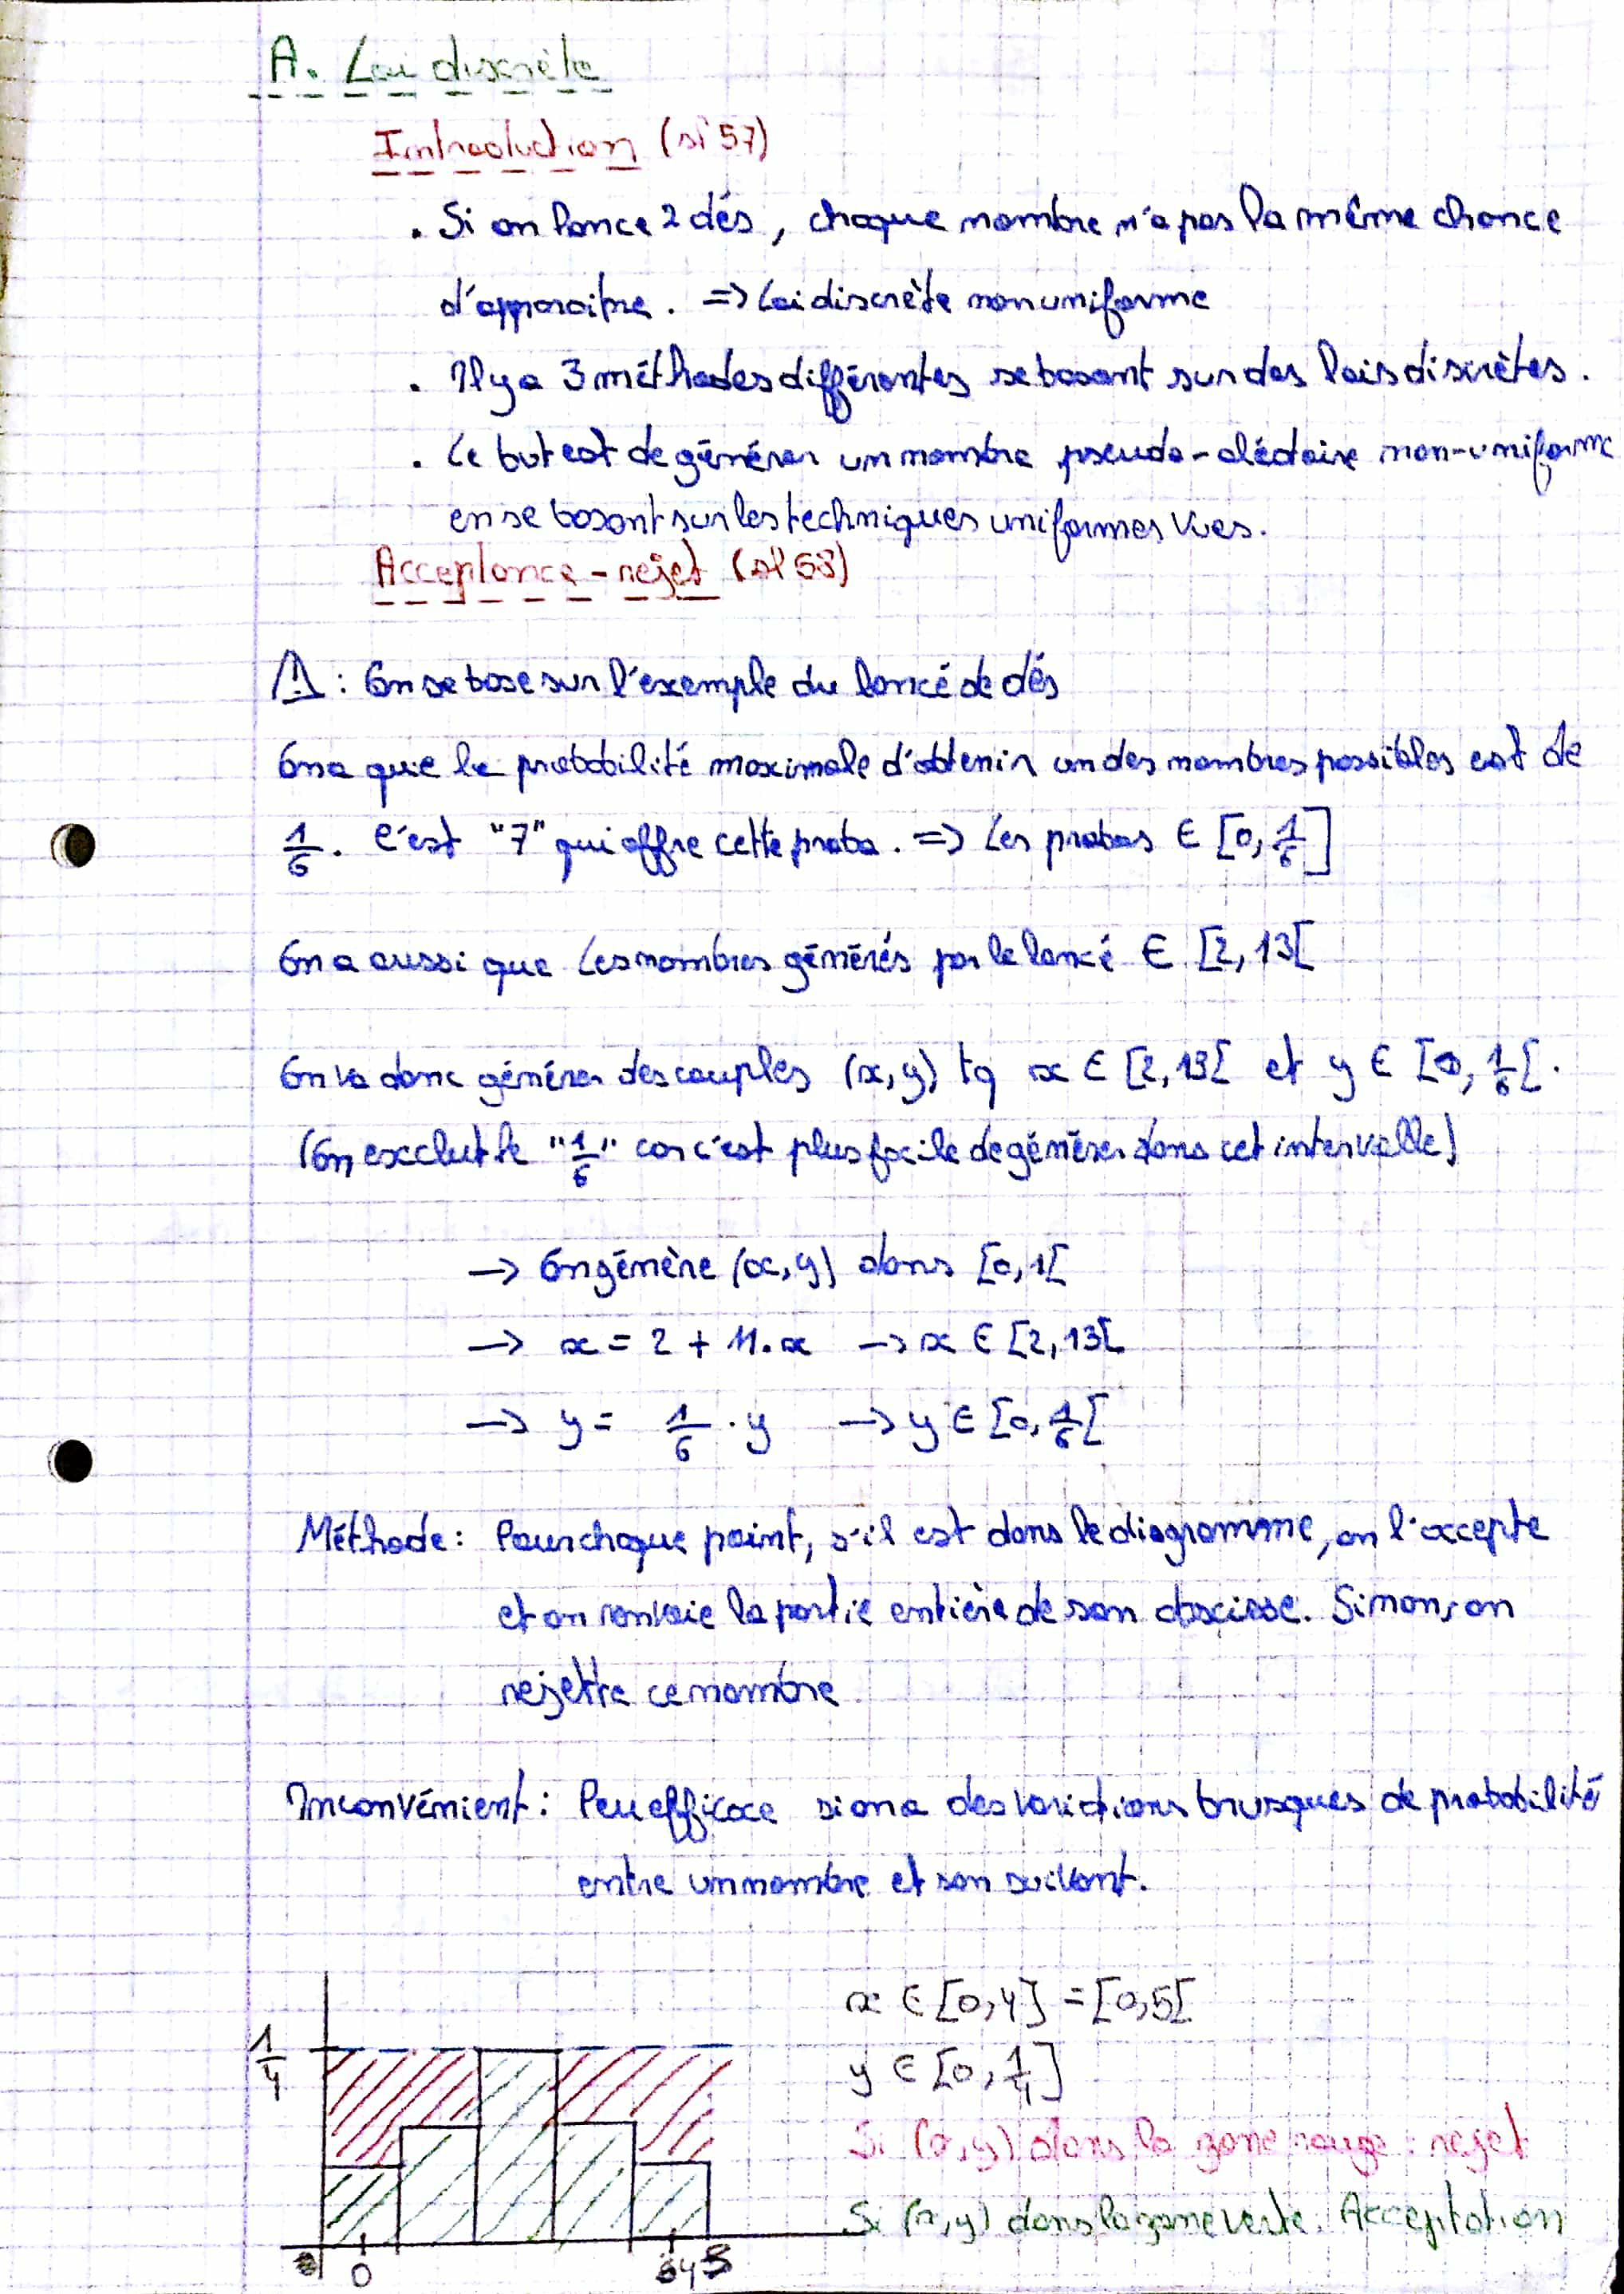 A. Loi discrète
Introduction (sl 57)
. Si on lance 2 dés, chaque nombre n'a pas la même chance
d'apparaitre. => Loi discrète non uniforme
. Il y a 3 méthodes différentes se basant sur des lois discrètes.
. Le but est de générer un nombre pseudo-aléatoire non-uniforme
en se basant sur les techniques uniformes vues.
Acceptance-rejet (sl 58)
⚠ : On se base sur l'exemple du lancé de dés
On a que la probabilité maximale d'obtenir un des nombres possibles est de
1/6. C'est "7" qui offre cette proba. => Les probas ∈ [0, 1/6]
On a aussi que les nombres générés par le lancé ∈ [2, 13[
On va donc générer des couples (x, y) tq x ∈ [2, 13[ et y ∈ [0, 1/6[.
(On exclut le "1/6" car c'est plus facile de générer dans cet intervalle)
-> On génère (x, y) dans [0, 1[
-> x = 2 + 11.x -> x ∈ [2, 13[
-> y = 1/6 . y -> y ∈ [0, 1/6[
Méthode : Pour chaque point, s'il est dans le diagramme, on l'accepte
et on renvoie la partie entière de son abscisse. Sinon, on
rejette ce nombre
Inconvénient : Peu efficace si on a des variations brusques de probabilité
entre un nombre et son suivant.
x ∈ [0, 4] = [0, 5[
1/4
y ∈ [0, 1/4]
Si (x, y) dans la zone rouge : rejet
Si (x, y) dans la zone verte. Acceptation
0 4 5